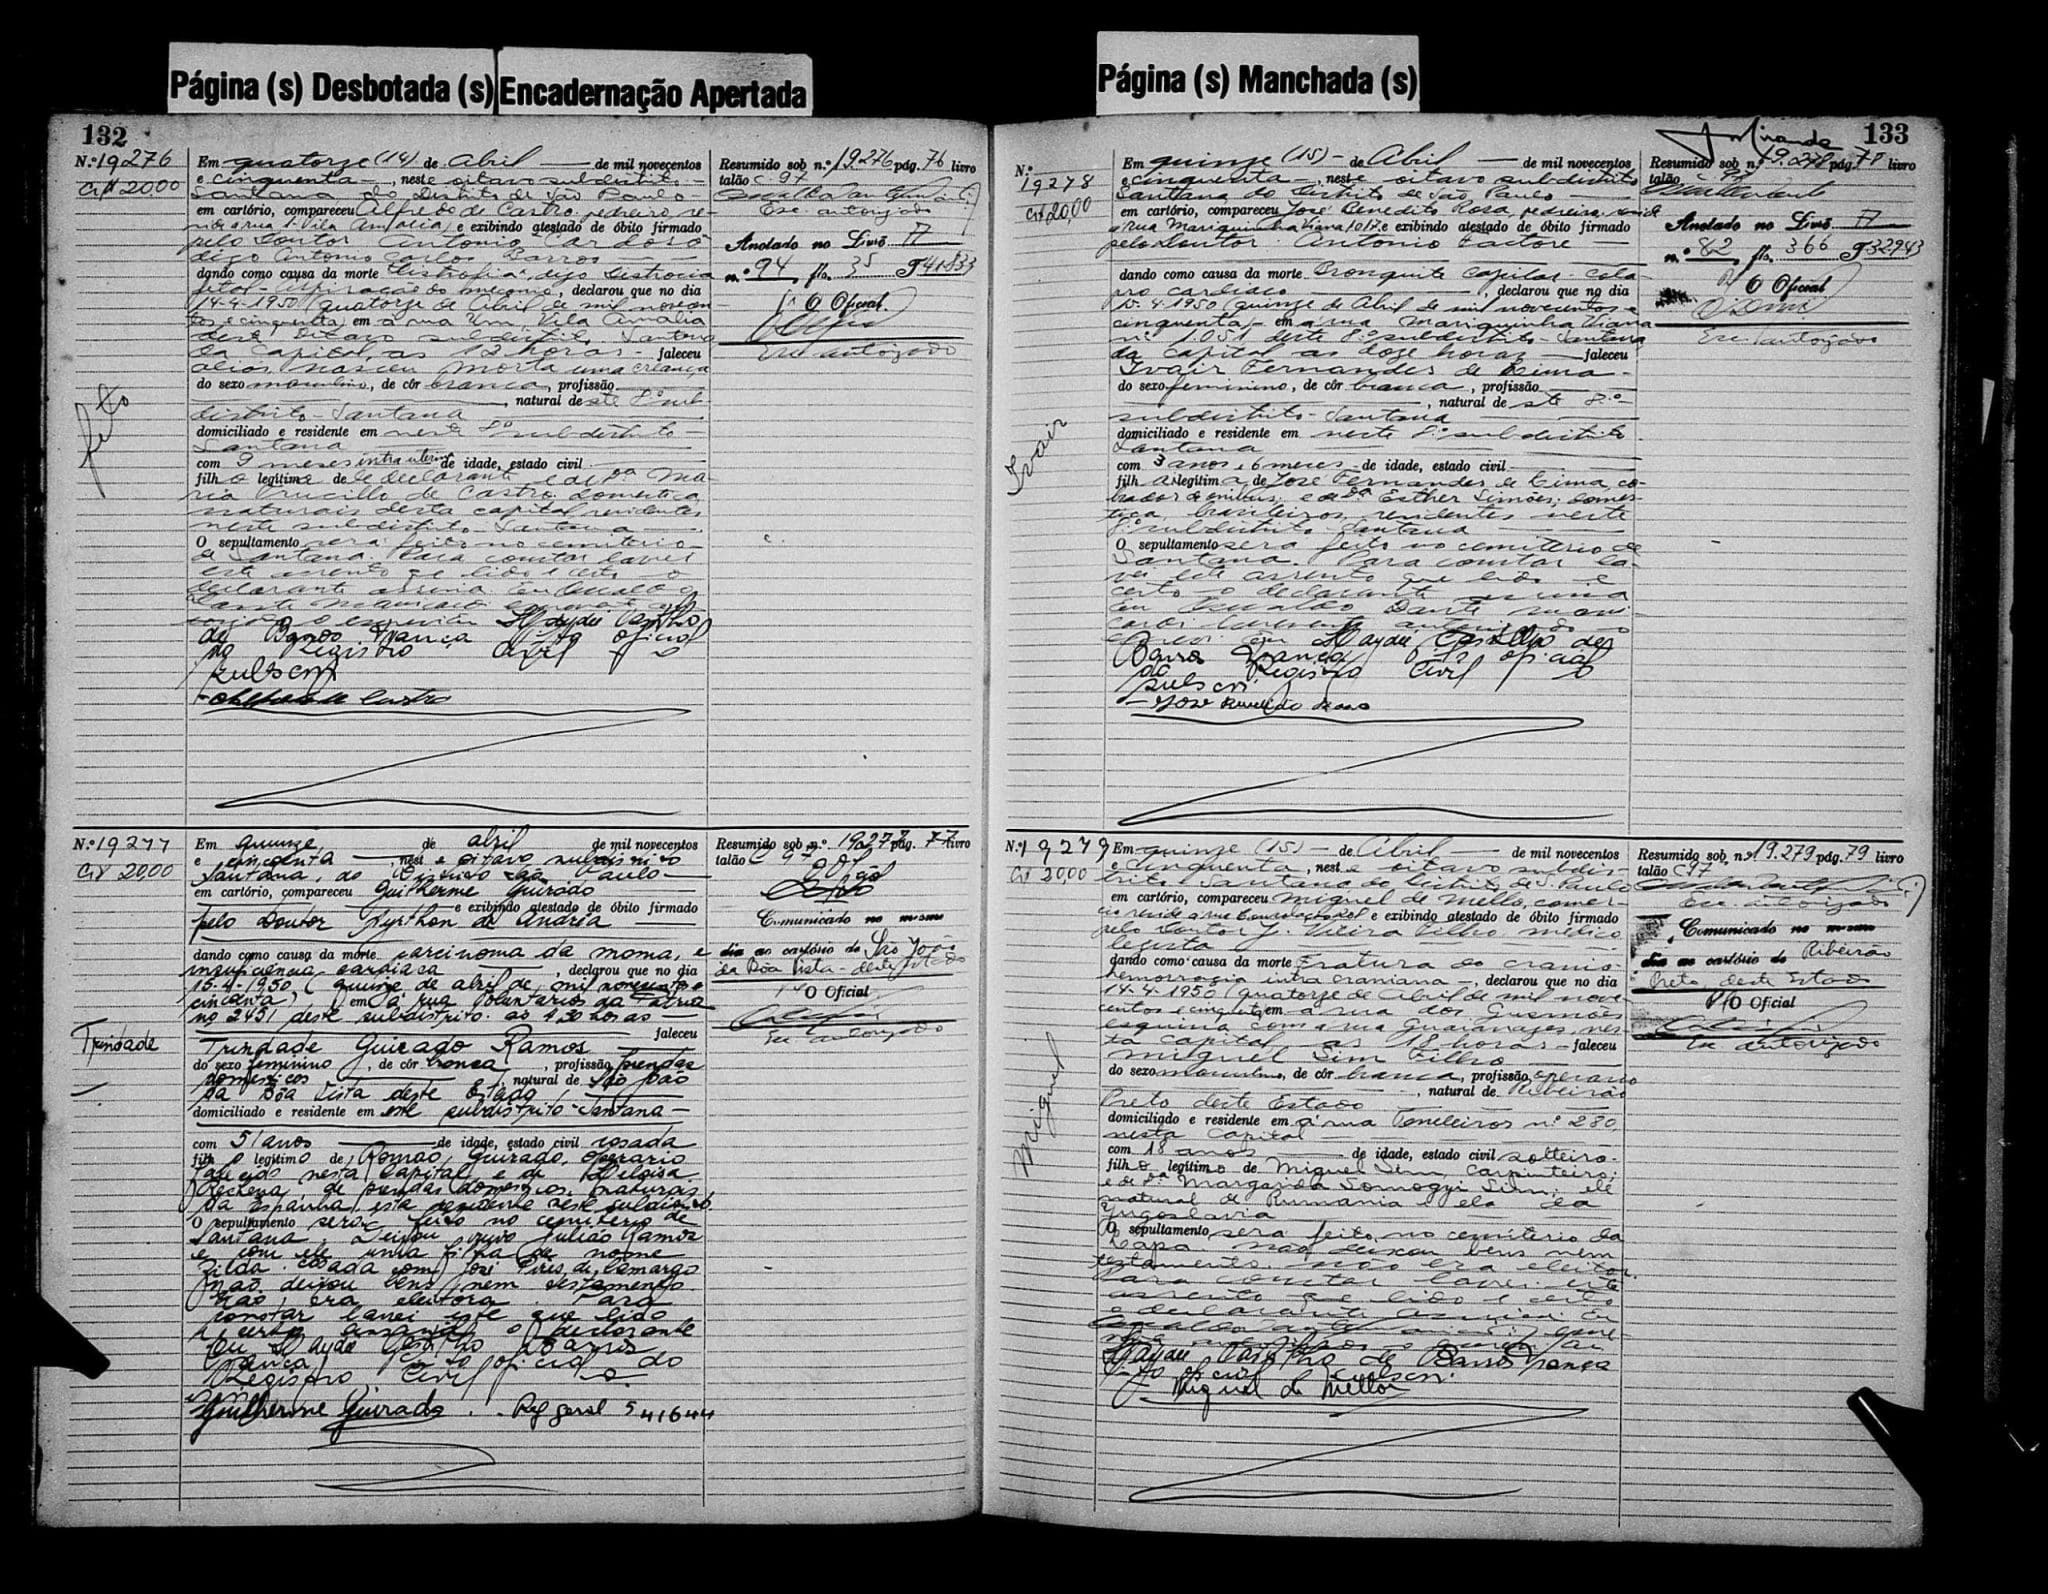 Página (s) Desbotada (s)
Encadernação Apertada
Página (s) Manchada (s)
132
N.º 19276
Cr$ 20,00
feto
Em quatorze (14) de Abril — de mil novecentos
e cinquenta —, neste oitavo subdistrito —
Santana do Distrito de São Paulo —
em cartório, compareceu Alfredo de Castro, pedreiro, re-
side a rua 1 Vila Amalia e exibindo atestado de óbito firmado
pelo Doutor Antonio Cardoso
digo Antonio Carlos Barros —
dando como causa da morte Distrofia, digo Distocia
fetal - aspiração do meconio, declarou que no dia
14-4-1950 (quatorze de Abril de mil novecen-
tos e cinquenta) em á rua Um, Vila Amalia
deste Oitavo subdistrito, Santana
da Capital, as 13 horas — faleceu
aliás, nasceu morta uma criança
do sexo masculino, de côr branca, profissão
, natural de ste 8º sub
distrito - Santana
domiciliado e residente em neste 8º subdistrito —
Santana
com 9 meses intra uterino de idade, estado civil
filho legitimo de le declarante e de Dª Ma-
ria de Castro, domestica,
naturais desta capital, residentes
neste subdistrito - Santana —
O sepultamento sera feito no cemiterio
de Santana. Para constar lavrei
este assento que lido e certo o
declarante assina. Eu
de Barros França oficial
do Registro Civil o
subscrevi
Resumido sob n.º 19.276 pág. 76 livro
talão C 97
Esc. autorizado
Anotado no Livro A
n.º 94 fls. 35 T 41833
O Oficial
Esc. autorizado
N.º 19277
Cr$ 20,00
Trindade
Em quinze de abril de mil novecentos
e cincoenta —, neste oitavo subdistrito
Santana, do Distrito São Paulo —
em cartório, compareceu Guilherme Guirado
e exibindo atestado de óbito firmado
pelo Doutor Pyrthon de Andréa
dando como causa da morte carcinoma da mama, e
insuficiência cardiaca —, declarou que no dia
15-4-1950, (quinze de abril de mil novecentos e
cincoenta), em á rua Voluntarios da Patria
nº 2451 deste subdistrito. ás 4,30 horas —
faleceu
Trindade Guirado Ramos
do sexo feminino, de côr branca, profissão prendas
domesticas, natural de São João
da Bôa Vista deste Estado
domiciliado e residente em este subdistrito Santana —
com 51 anos — de idade, estado civil casada
filho legitimo de Romão Guirado, operario
falecido nesta Capital e de Heloisa
de prendas domesticas, naturais
da Espanha, esta residente neste subdistrito.
O sepultamento será feito no cemiterio de
Santana. Deixou viuvo Julião Ramos
e com ele uma filha de nome
Zilda casada com José Pires de Camargo
não deixou bens nem testamento.
Não era eleitora. Para
constar lavrei este que lido
e certo assina o declarante
Eu Haydée Castilho Barros
França oficial do
Registro Civil o
Guilherme Guirado. Reg geral 541644
Resumido sob n.º 19.277 pág. 77 livro
talão C 97
Comunicado no mesmo
dia ao cartório de São João
da Bôa Vista - deste Estado
O Oficial
Esc autorizado
133
N.º
19278
Cr$ 20,00
Ivair
Em quinze (15) — de Abril — de mil novecentos
e cinquenta —, neste oitavo subdistrito
Santana do Distrito de São Paulo —
em cartório, compareceu José Benedito Rosa, pedreiro, reside
a rua Mariquinha Viana 1051 e exibindo atestado de óbito firmado
pelo Doutor Antonio —
dando como causa da morte Bronquite capilar - cola-
pso cardiaco —, declarou que no dia
15-4-1950 (quinze de Abril de mil novecentos e
cinquenta) em a rua Mariquinha Viana
nº 1.051 deste 8º subdistrito - Santana
da Capital as doze horas — faleceu
Ivair Fernandes de Lima —
do sexo feminino, de côr branca, profissão
, natural de ste 8º —
subdistrito - Santana
domiciliado e residente em neste 8º subdistrito
Santana
com 3 anos e 6 meses — de idade, estado civil
filh a legitima de José Fernandes de Lima, co-
brador de onibus, e de Dª Esther Simões, domes-
tica, brasileiros, residentes neste
8º subdistrito Santana
O sepultamento sera feito no cemiterio de
Santana. Para constar la-
vrei este assento que lido e
certo o declarante assina
Eu Oswaldo Dante
autorizado o
escrevi. Eu Haydée Castilho de
Barros França oficial
do Registro Civil o
subscrevi
José Benedito Rosa
Resumido sob n.º 19.278 pág. 78 livro
talão
Anotado no Livro A
n.º 82 fls. 366 T 32943
O Oficial
Esc. autorizado
N.º 19279
Cr$ 20,00
Miguel
Em quinze (15) — de Abril — de mil novecentos
e cinquenta —, neste oitavo subdis-
trito Santana do Distrito de S. Paulo
em cartório, compareceu Miguel de Mello, comer-
cio reside a rua e exibindo atestado de óbito firmado
pelo Doutor J. Vieira Filho medico
legista
dando como causa da morte Fratura do cranio
hemorragia intra craniana —, declarou que no dia
14-4-1950 (quatorze de Abril de mil nove-
centos e cinquenta) em a rua dos Gusmões
esquina com a rua Guaianazes, nes-
ta capital as 18 horas — faleceu
Miguel Sim Filho
do sexo masculino, de côr branca, profissão operario
, natural de Ribeirão
Preto deste Estado
domiciliado e residente em á rua Toneleiros nº 280
nesta Capital
com 18 anos — de idade, estado civil solteiro —
filho legitimo de Miguel Sim, carpinteiro,
e de Dª Margarida Somogyi Sim, ele
natural de Rumania e ela da
Yugoslavia
O sepultamento sera feito no cemiterio da
Lapa. Não deixou bens nem
testamento. Não era eleitor.
Para constar lavrei este
assento que lido e certo
o declarante assina. Eu
Haydée Castilho de Barros França
oficial subscrevi.
Miguel de Mello
Resumido sob n.º 19.279 pág. 79 livro
talão C 97
Esc. autorizado
Comunicado no mesmo
dia ao cartório de Ribeirão
Preto deste Estado
O Oficial
Esc autorizado